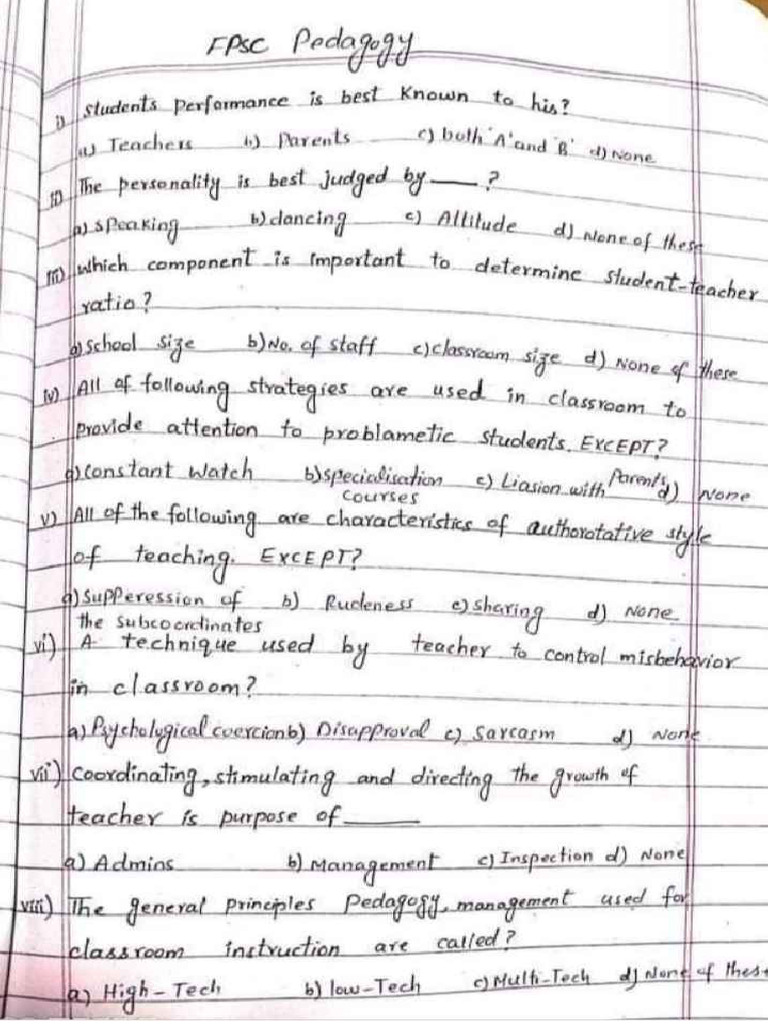 FPSC Pedagogy
i) Students performance is best Known to his?
a) Teachers b) Parents c) both 'A' and 'B' d) None
ii) The personality is best judged by ___ ?
a) speaking b) dancing c) Altitude d) None of these
iii) which component is important to determine student-teacher
ratio?
a) School size b) No. of staff c) classroom size d) None of these
iv) All of following strategies are used in classroom to
provide attention to problametic students. EXCEPT?
a) Constant Watch b) specialisation c) Liasion with Parents d) None
courses
v) All of the following are characteristics of authorotative style
of teaching. EXCEPT?
a) Supperession of b) Rudeness c) sharing d) None
the subcoordinates
vi) A technique used by teacher to control misbehavior
in classroom?
a) Psychological coercion b) Disapproval c) Sarcasm d) None
vii) Coordinating, stimulating and directing the growth of
teacher is purpose of ___
a) Admins b) Management c) Inspection d) None
viii) The general principles Pedagogy, management used for
classroom instruction are called?
a) High-Tech b) low-Tech c) Multi-Tech d) None of these